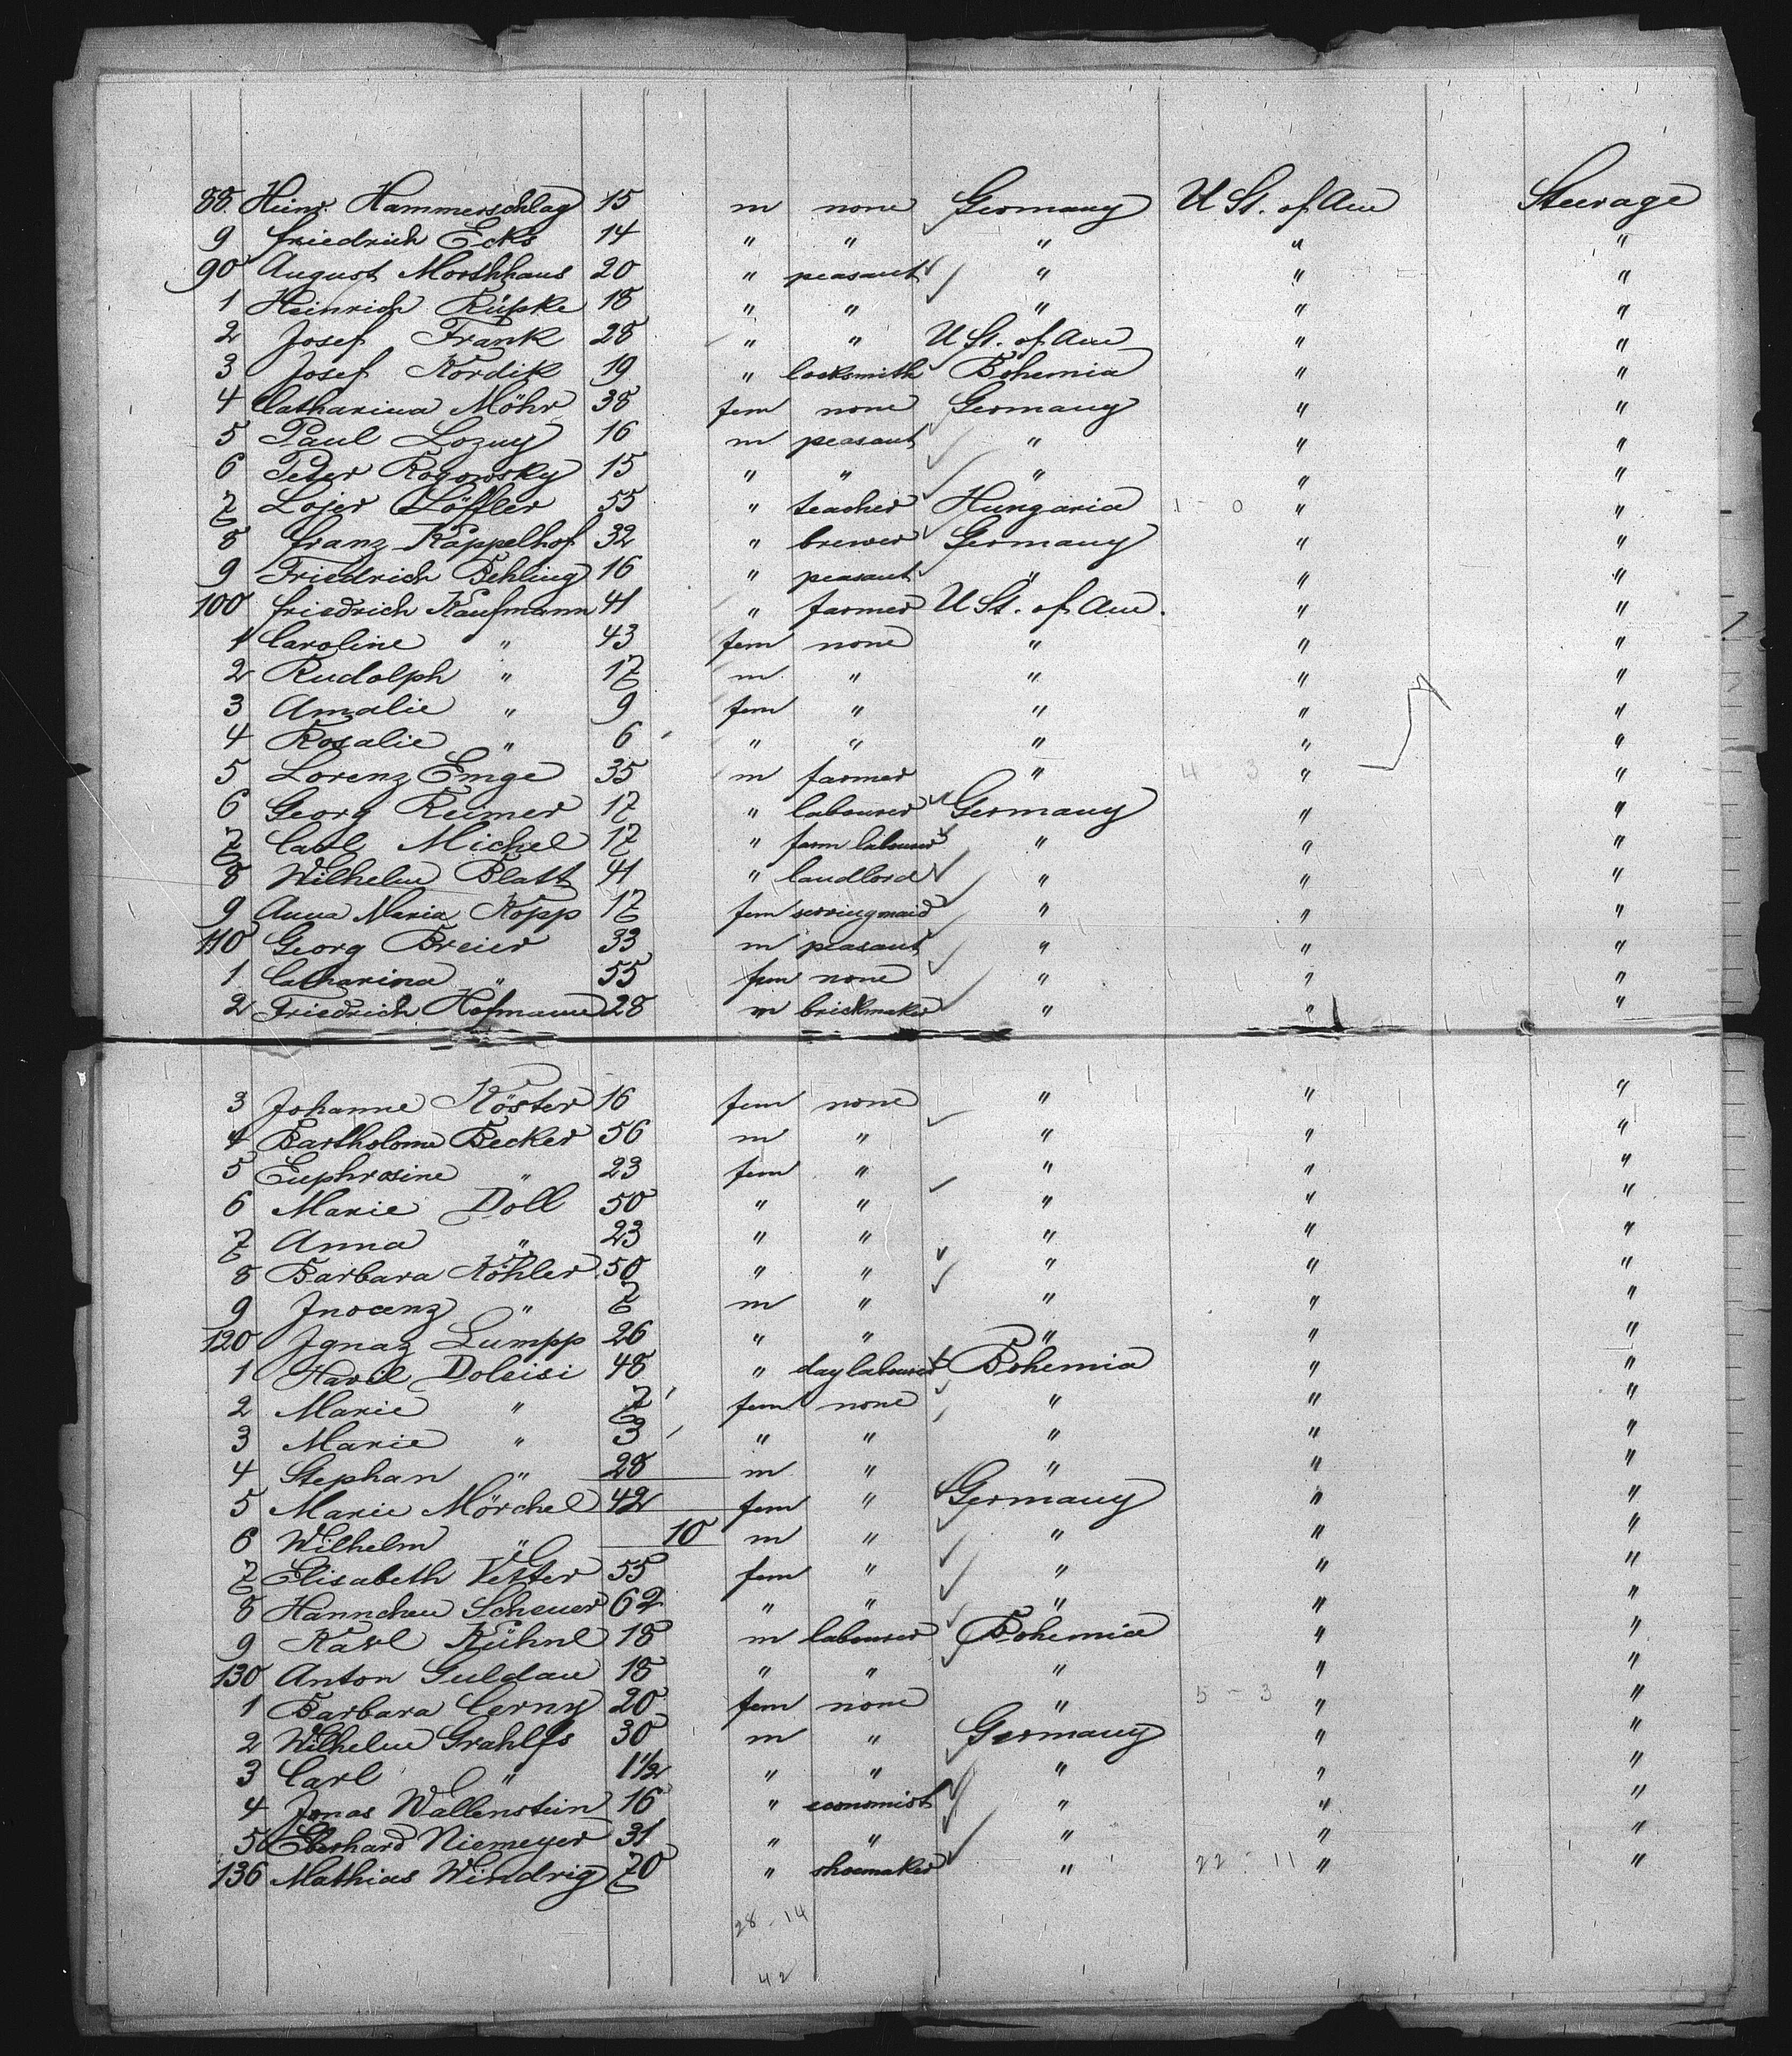 88. Heinr. Hammerschlag 15 m none Germany U St. of Am Steerage
9 Friedrich Ecks 14 " " " " "
90 August Morshhaus 20 " peasant " " "
1 Heinrich Rüpke 18 " " " " "
2 Josef Frank 28 " " U St. of Am " "
3 Josef Kordik 19 " locksmith Bohemia " "
4 Catharina Möhr 38 fem none Germany " "
5 Paul Lozuy 16 m peasant " " "
6 Peter Rogowsky 15 " " " " "
7 Lojer Löffler 55 " teacher Hungaria 1 - 0 " "
8 Franz Kappelhof 32 " brewer Germany " "
9 Friedrich Behling 16 " peasant " " "
100 Friedrich Kaufmann 41 " farmer U St. of Am. " "
1 Caroline " 43 fem none " " "
2 Rudolph " 17 m " " " "
3 Amalie " 9 fem " " " "
4 Rosalie " 6 " " " " "
5 Lorenz Emge 35 m farmer " 4 - 3 " "
6 Georg Reimer 17 " labourer Germany " "
7 Carl Michel 17 " farm labourer " " "
8 Wilhelm Blatt 41 " landlord " " "
9 Anna Maria Kopp 17 fem servingmaid " " "
110 Georg Breier 33 m peasant " " "
1 Catharina " 55 fem none " " "
2 Friedrich Hofmann 28 m brickmaker " " "
3 Johanne Köster 16 fem none " " "
4 Bartholome Becker 56 m " " " "
5 Euphrosine " 23 fem " " " "
6 Marie Doll 50 " " " " "
7 Anna " 23 " " " " "
8 Barbara Köhler 50 " " " " "
9 Inocenz " 7 m " " " "
120 Ignaz Lumpp 26 " " " " "
1 Havel Doleisi 48 " day labourer Bohemia " "
2 Marie " 7 fem none " " "
3 Marie " 3 " " " " "
4 Stephan " 28 m " " " "
5 Marie Mörchel 42 fem " Germany " "
6 Wilhelm " 10 m " " " "
7 Elisabeth Vetter 55 fem " " " "
8 Hannchen Scheuer 62 " " " " "
9 Karl Kühnl 18 m labourer Bohemia " "
130 Anton Guldau 18 " " " " "
1 Barbara Cerny 20 fem none " 5 - 3 " "
2 Wilhelm Grahlfs 30 m " Germany " "
3 Carl " 1 1/2 " " " " "
4 Jonas Wallenstein 16 " economist " " "
5 Eberhard Niemeyer 31 " " " " "
136 Mathias Windrig 70 " shoemaker " 22 - 11 " "
28 - 14
42